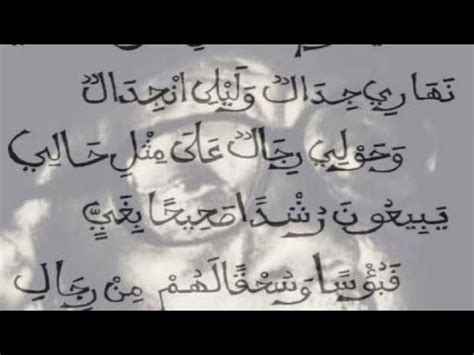 نَهَارِي جِدَالٌ وَلَيْلِي انْجِدَالٌ
وَحَوْلِي رِجَالٌ عَلَى مِثْلِ حَالِي
يَبِيعُونَ رُشْدًا صَحِيحًا بِغَيٍّ
فَبُؤْسًا وَسُحْقًا لَهُمْ مِنْ رِجَالِ